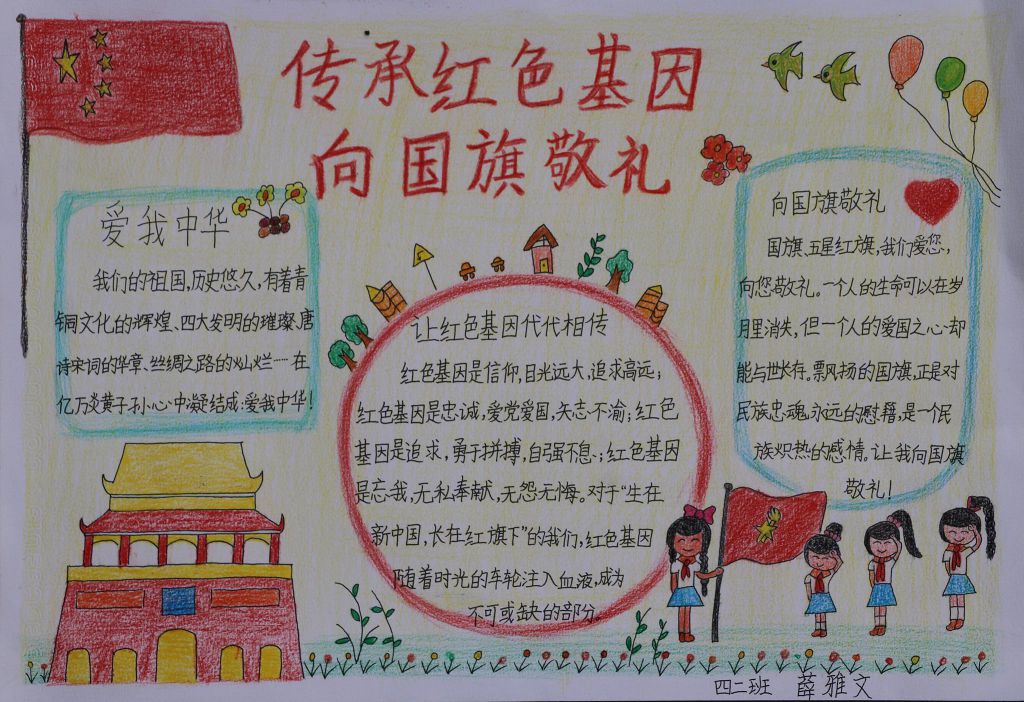 传承红色基因
向国旗敬礼
爱我中华
我们的祖国,历史悠久,有着青
铜文化的辉煌、四大发明的璀璨、唐
诗宋词的华章、丝绸之路的灿烂……在
亿万炎黄子孙心中凝结成:爱我中华!
让红色基因代代相传
红色基因是信仰,目光远大,追求高远;
红色基因是忠诚,爱党爱国,矢志不渝;红色
基因是追求,勇于拼搏,自强不息;红色基因
是忘我,无私奉献,无怨无悔。对于“生在
新中国,长在红旗下”的我们,红色基因
随着时光的车轮注入血液,成为
不可或缺的部分。
向国旗敬礼
国旗,五星红旗,我们爱您,
向您敬礼。一个人的生命可以在岁
月里消失,但一个人的爱国之心却
能与世长存。票风扬的国旗,正是对
民族忠魂永远的慰藉,是一个民
族炽热的感情。让我向国旗
敬礼!
四二班 薛雅文